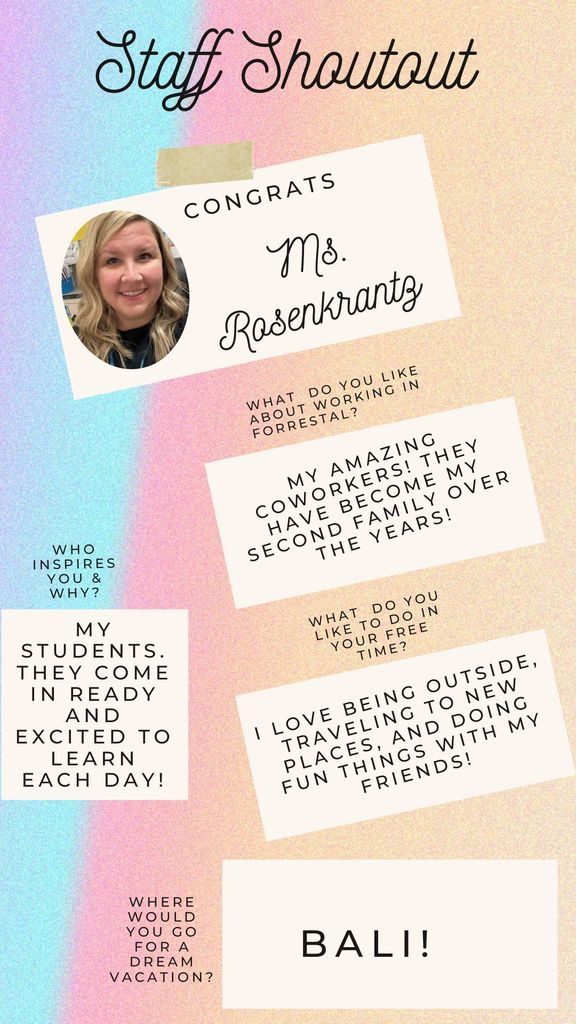 Staff Shoutout
CONGRATS
Ms.
Rosenkrantz
WHAT DO YOU LIKE
ABOUT WORKING IN
FORRESTAL?
MY AMAZING
COWORKERS! THEY
HAVE BECOME MY
SECOND FAMILY OVER
THE YEARS!
WHO
INSPIRES
YOU &
WHY?
MY
STUDENTS.
THEY COME
IN READY
AND
EXCITED TO
LEARN
EACH DAY!
WHAT DO YOU
LIKE TO DO IN
YOUR FREE
TIME?
I LOVE BEING OUTSIDE,
TRAVELING TO NEW
PLACES, AND DOING
FUN THINGS WITH MY
FRIENDS!
WHERE
WOULD
YOU GO
FOR A
DREAM
VACATION?
BALI!